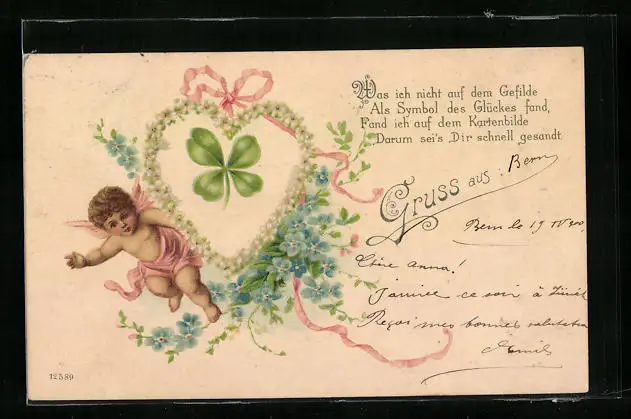 Was ich nicht auf dem Gefilde
Als Symbol des Glückes fand,
Fand ich auf dem Kartenbilde
Darum sei's Dir schnell gesandt.
Gruss aus: Bern
Bern le 19
Chère Anna!
J'arrive ce soir à Zürich
Reçoi mes bonnes
12589